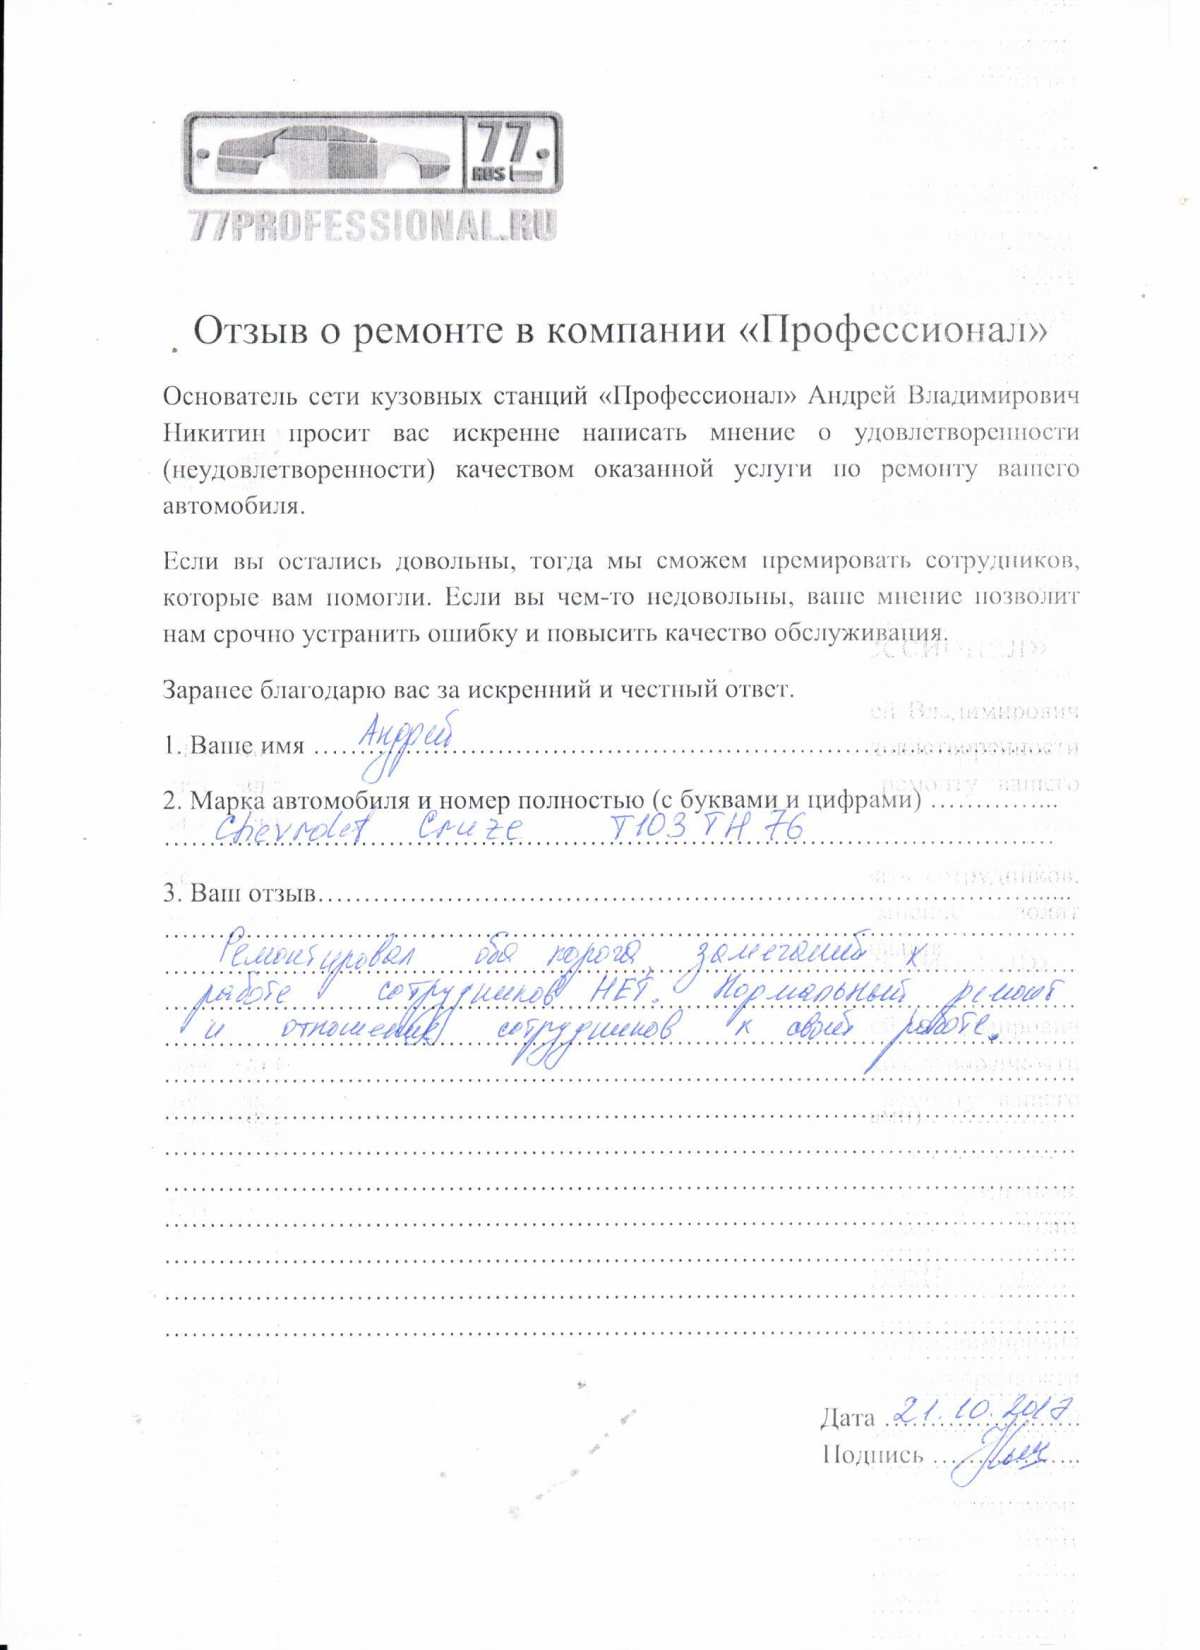 77
RUS
77PROFESSIONAL.RU
Отзыв о ремонте в компании «Профессионал»
Основатель сети кузовных станций «Профессионал» Андрей Владимирович
Никитин просит вас искренне написать мнение о удовлетворенности
(неудовлетворенности) качеством оказанной услуги по ремонту вашего
автомобиля.
Если вы остались довольны, тогда мы сможем премировать сотрудников,
которые вам помогли. Если вы чем-то недовольны, ваше мнение позволит
нам срочно устранить ошибку и повысить качество обслуживания.
Заранее благодарю вас за искренний и честный ответ.
1. Ваше имя Андрей
2. Марка автомобиля и номер полностью (с буквами и цифрами)
Chevrolet Cruze Т103ТН 76
3. Ваш отзыв
Ремонтировал оба порога, замечаний к
работе сотрудников НЕТ. Нормальный ремонт
и отношение сотрудников к своей работе.
Дата 21.10.2017
Подпись